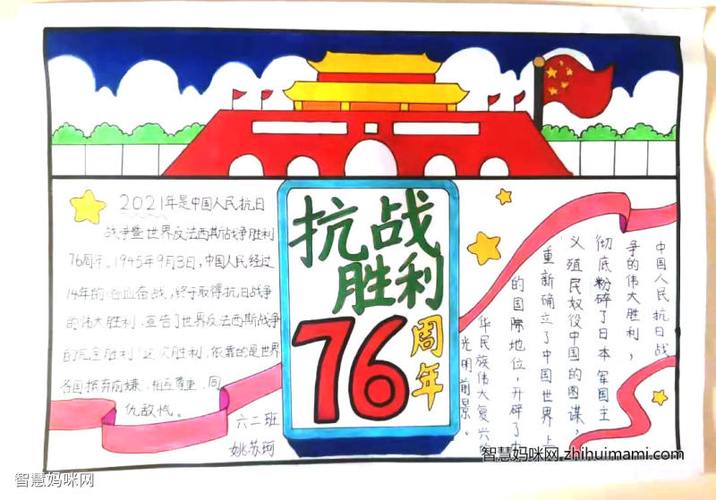 2021年是中国人民抗日
战争暨世界反法西斯战争胜利
76周年。1945年9月3日,中国人民经过
14年的浴血奋战,终于取得抗日战争
的伟大胜利,宣告了世界反法西斯战争
的完全胜利!这次胜利,依靠的是世界
各国摒弃前嫌,相互尊重,同
仇敌忾。
六二班
姚苏珂
抗战
胜利
76
周年
中国人民抗日战
争的伟大胜利,
彻底粉碎了日本军国主
义殖民奴役中国的图谋,
重新确立了中国世界上
的国际地位,开辟了中
华民族伟大复兴的
光明前景。
智慧妈咪网
智慧妈咪网.zhihuimami.com